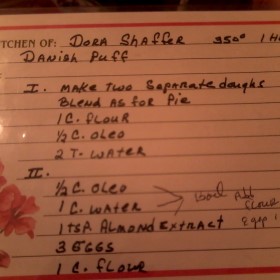 KITCHEN OF: DORA SHAFFER 350° 1 H
DANISH PUFF
I. MAKE TWO SEPARATE DOUGHS
BLEND AS FOR PIE
1 C. FLOUR
½ C. OLEO
2 T. WATER
II.
½ C. OLEO
1 C. WATER
Boil Add
Flour
1 TSP. ALMOND EXTRACT
3 EGGS
1 C. FLOUR